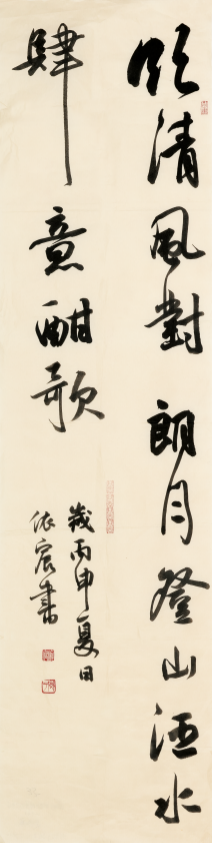 臨清風對朗月登山泛水
肆意酣歌
歲丙申夏日
依宸書